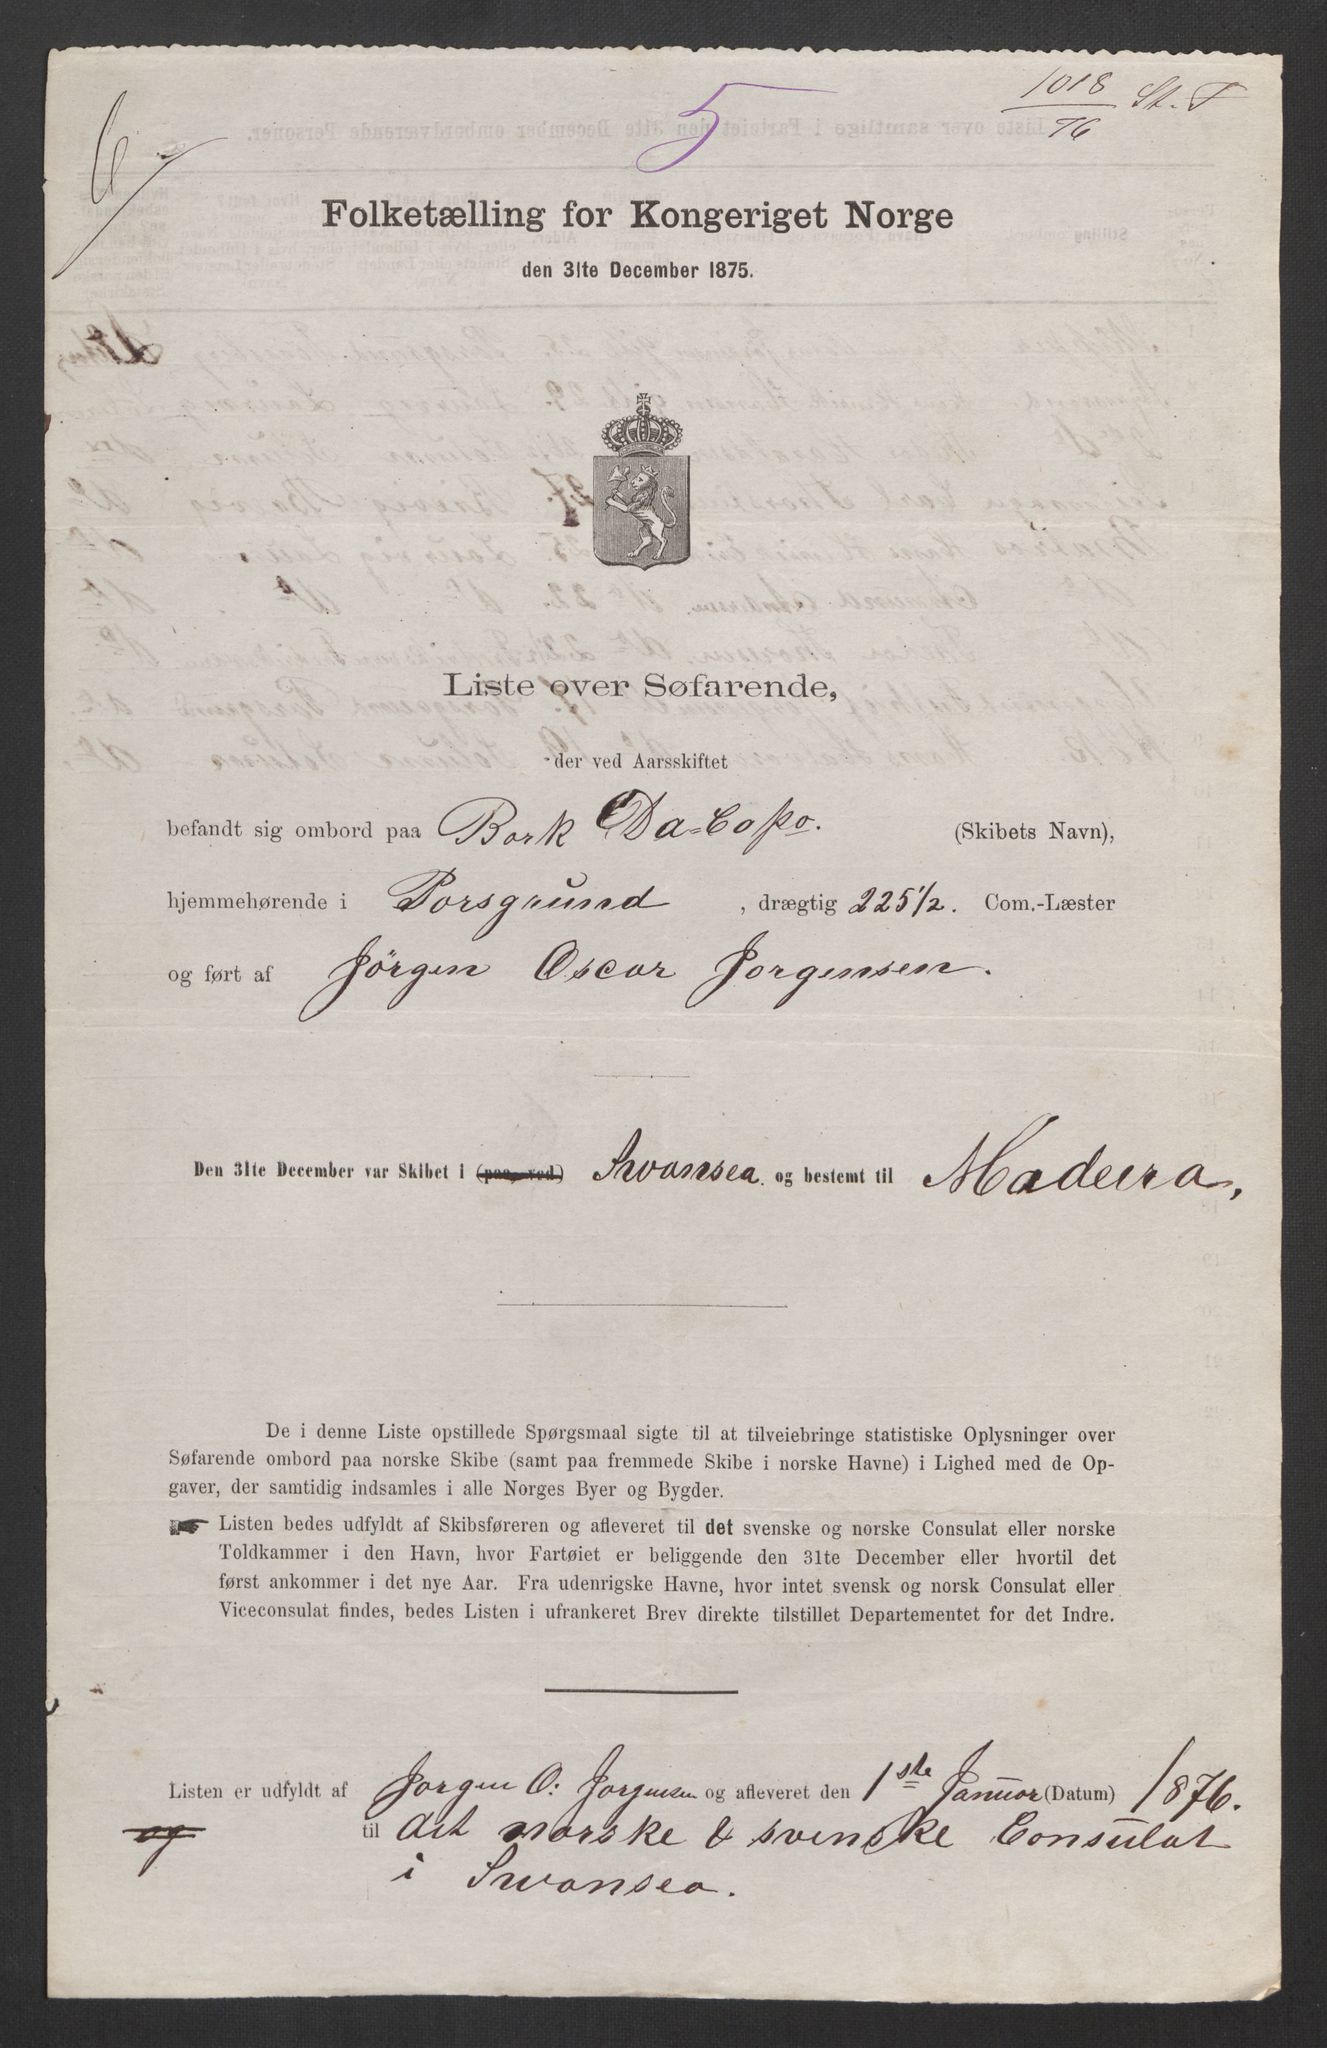 6
5
1018
76
St. T
Folketælling for Kongeriget Norge
den 31te December 1875.
Liste over Søfarende,
der ved Aarsskiftet
befandt sig ombord paa Bark Da-Capo. (Skibets Navn),
hjemmehørende i Porsgrund , drægtig 225 1/2. Com.-Læster
og ført af Jörgen Oscar Jorgensen.
Den 31te December var Skibet i (paa, ved) Swansea. og bestemt til Madeira,
De i denne Liste opstillede Spørgsmaal sigte til at tilveiebringe statistiske Oplysninger over
Søfarende ombord paa norske Skibe (samt paa fremmede Skibe i norske Havne) i Lighed med de Op-
gaver, der samtidig indsamles i alle Norges Byer og Bygder.
☛ Listen bedes udfyldt af Skibsføreren og afleveret til det svenske og norske Consulat eller norske
Toldkammer i den Havn, hvor Fartøiet er beliggende den 31te December eller hvortil det
først ankommer i det nye Aar. Fra udenrigske Havne, hvor intet svensk og norsk Consulat eller
Viceconsulat findes, bedes Listen i ufrankeret Brev direkte tilstillet Departementet for det Indre.
Listen er udfyldt af Jorgen O: Jorgensen og afleveret den 1ste Januar (Datum) 1876.
og til det norske & svenske Consulat
i Swansea.